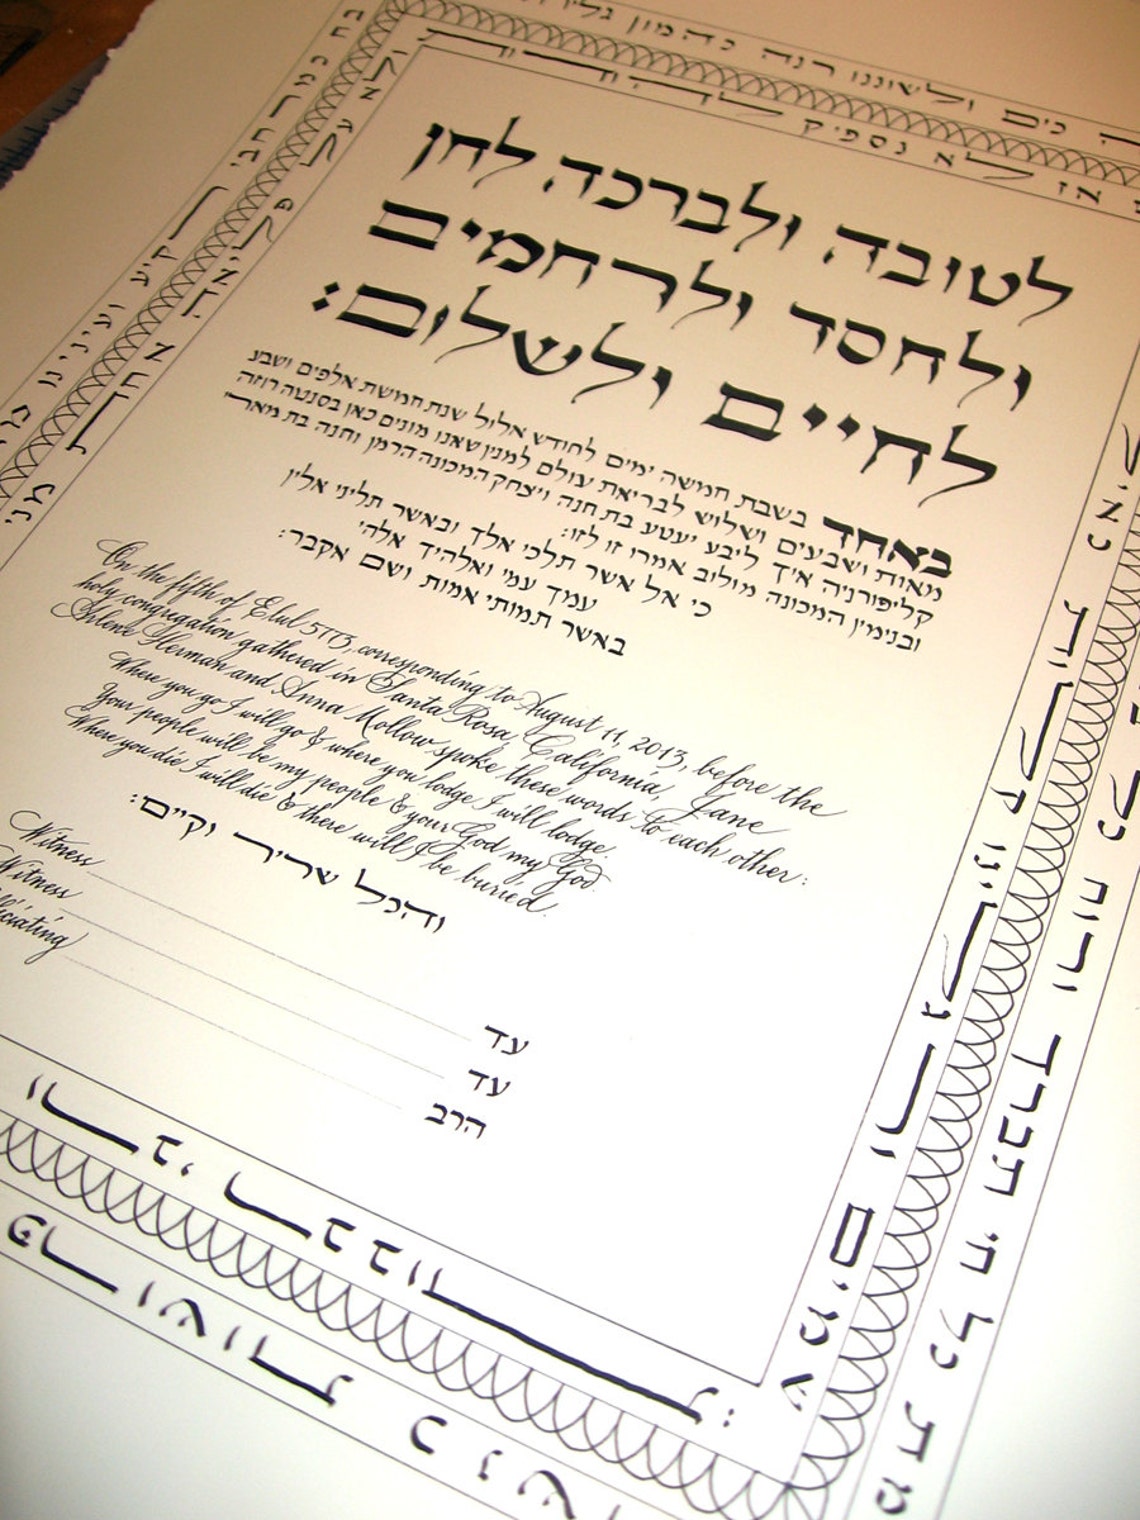 לטובה ולברכה לחן
ולחסד ולרחמים
לחיים ולשלום:
באחד בשבת חמישה ימים לחודש אלול שנת חמישת אלפים ושבע
מאות ושבעים ושלוש לבריאת עולם למנין שאנו מונים כאן בסנטה רוזה
קליפורניה איך ליבע יעטע בת חנה ויצחק המכונה הרמן וחנה בת מיארי
ובנימין המכונה מוליוב אמרי זו לזו:
כי אל אשר תלכי אלך ובאשר תליני אלין
עמך עמי ואלהיך אלהי
באשר תמותי אמות ושם אקבר:
On the fifth of Elul 5773, corresponding to August 11, 2013, before the
holy congregation gathered in Santa Rosa, California, Jane
Arlene Herman and Anna Mollow spoke these words to each other:
Where you go I will go & where you lodge I will lodge.
Your people will be my people & your God my God.
Where you die I will die & there will I be buried.
והכל שריר וקיים:
Witness עד
Witness עד
הרב
כים ולשוננו רנה כהמון
אז לא נספיק להודות
ולא על פליאה אחת מני
רקיע ועינינו
שמים ורגלינו קלות
מת כל חי תברך ורוח